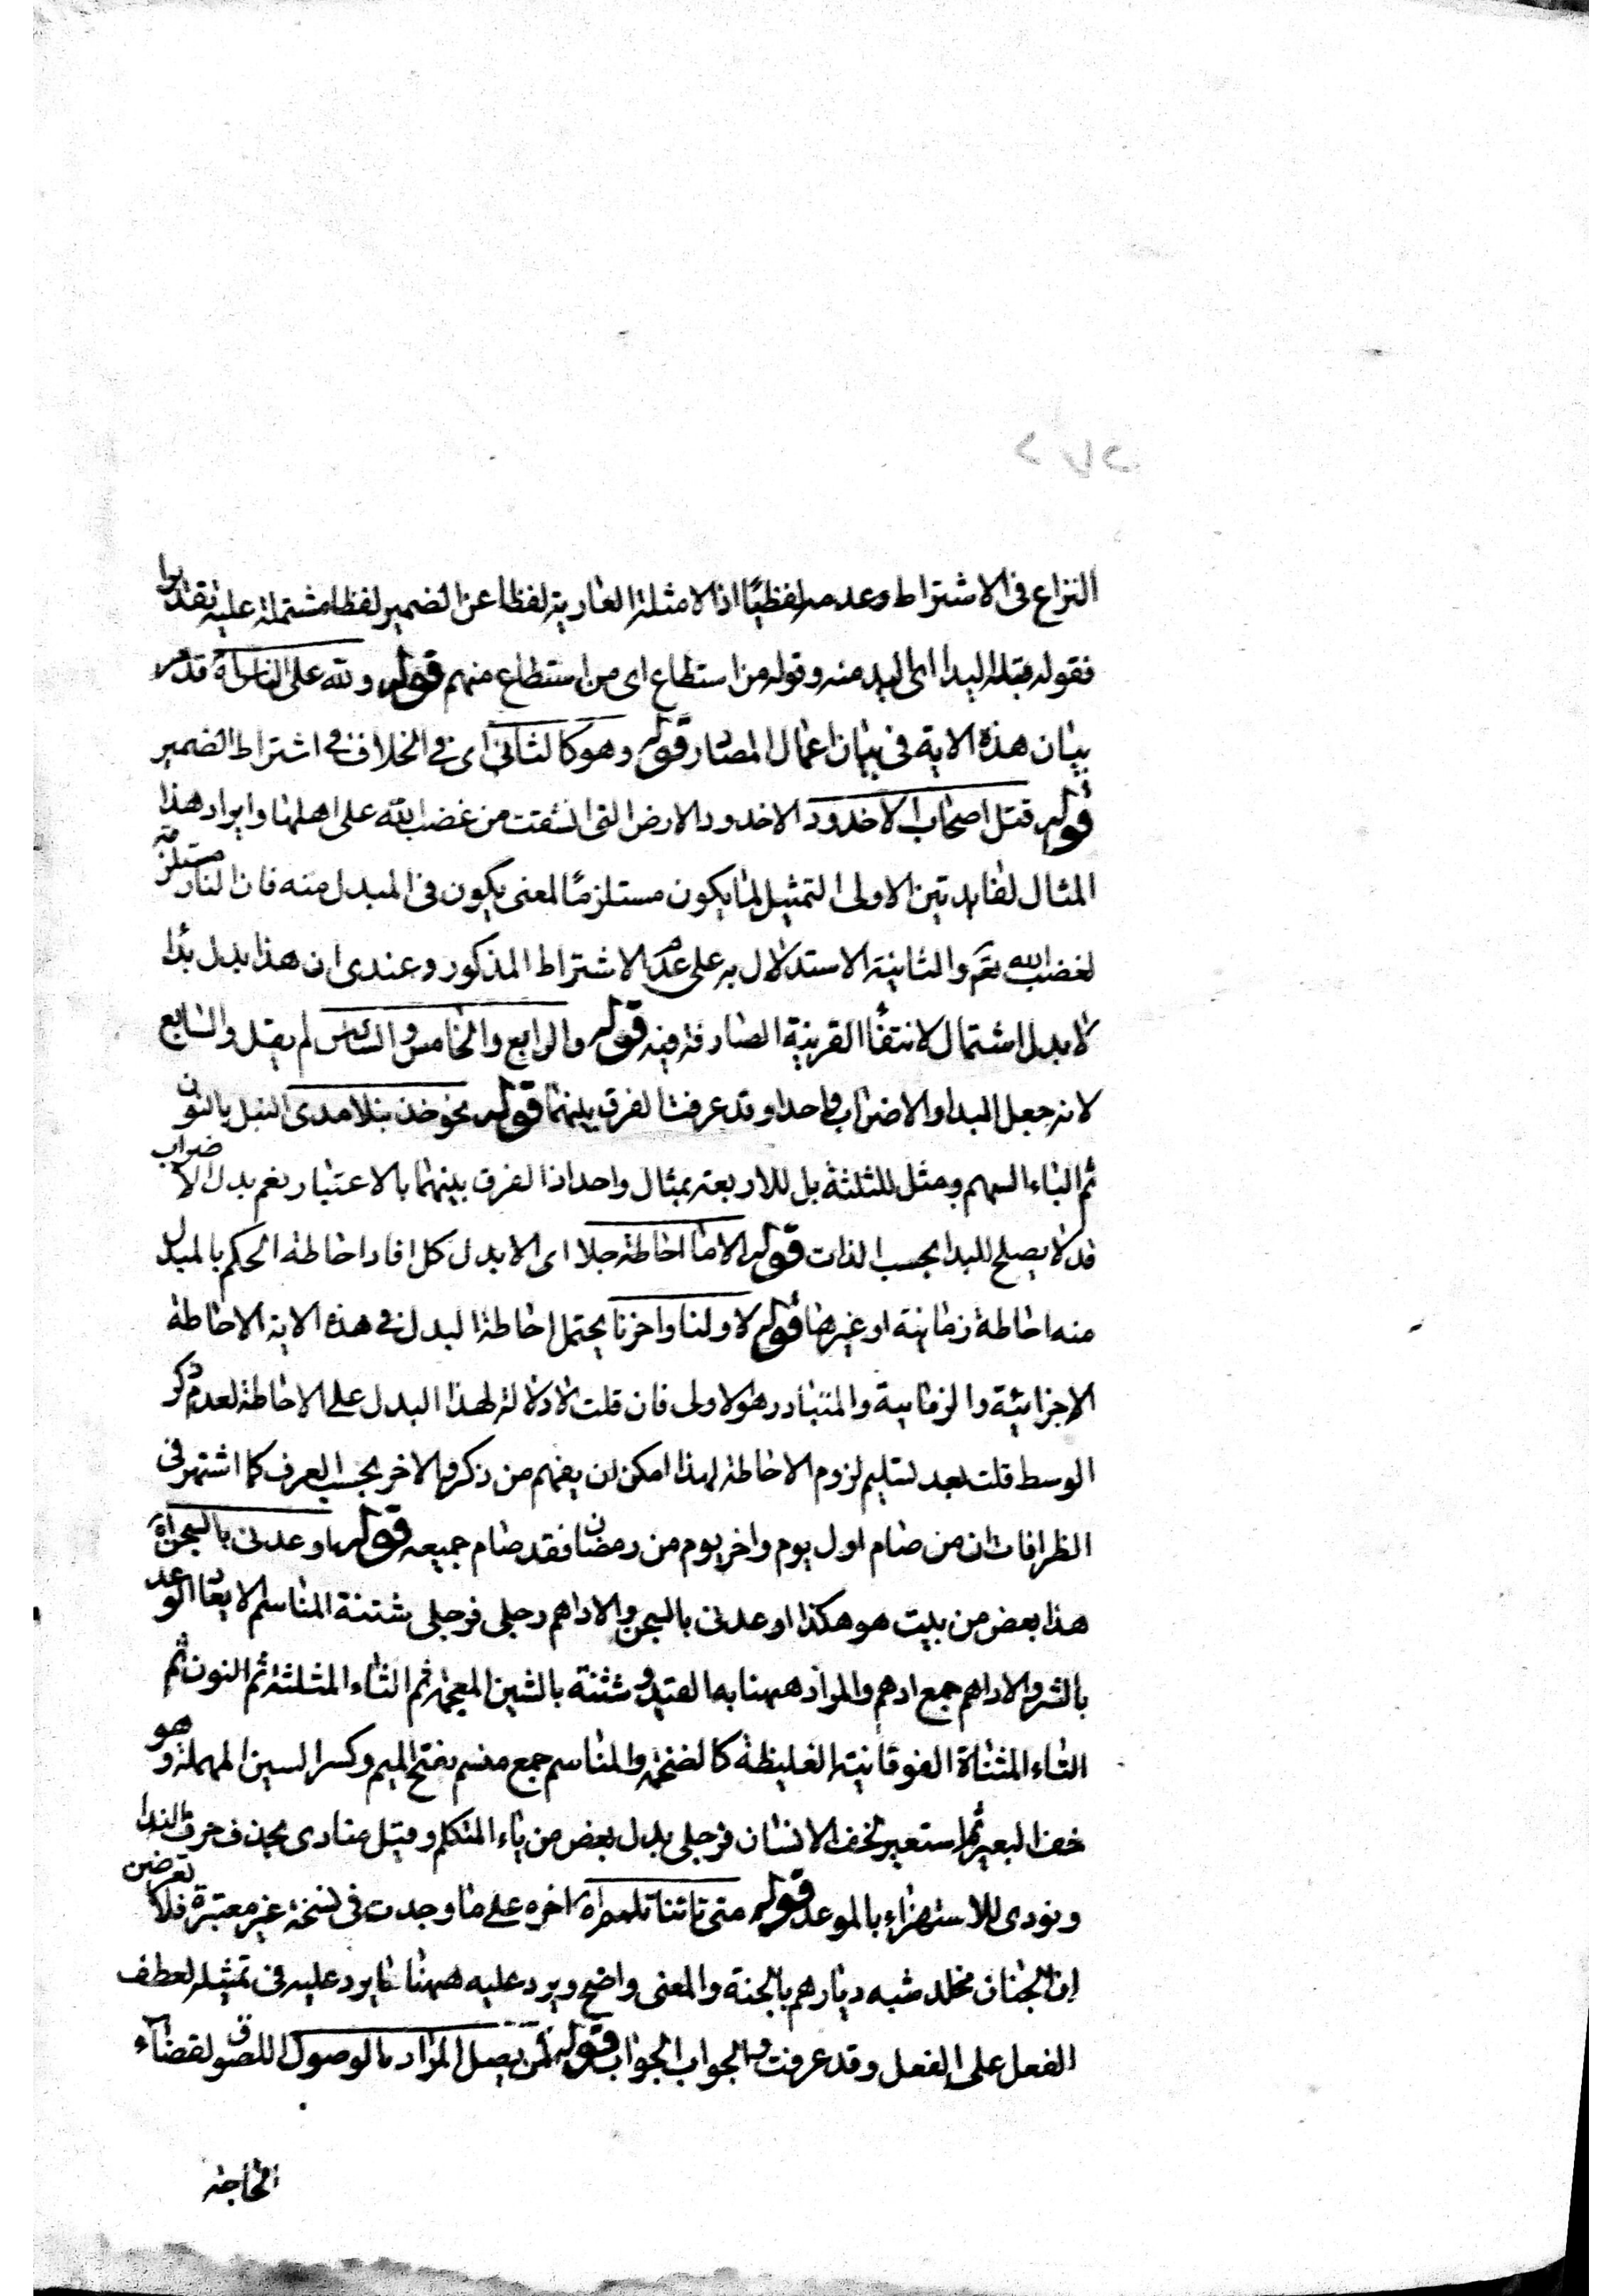 النزاع فى الاشتراط وعدمه لفظيًا اذ الامثلة العارية لفظا عن الضمير لفظا مشتملة عليه تقديرا
فقوله قبله اليدا اى اليد منه وقوله من استطاع اى من استطاع منهم قوله ولله على الناس اه قد مر
بيان هذه الاية فى بيان اعمال المصدر قوله وهو كالثانى اى فى الخلاف فى اشتراط الضمير
قوله قتل اصحاب الاخدود الاخدود الارض التى انشقت من غضب الله على اهلها وايراد هذا
المثال لفايدتين الاولى التمثيل لما يكون مستلزمًا لمعنى يكون فى المبدل منه فان النار مستلزمة
لغضب الله تعم والثانية الاستدلال به على عدم الاشتراط المذكور وعندى ان هذا بدل بدا
لا بدل اشتمال لانتفاء القرينة الصارفة فيه قوله والرابع والخامس والسادس لم يقل والسابع
لانه جعل البدا والاضراب واحدا وقد عرفت الفرق بينهما قوله نحو خذ نبلا مدى النبل بالنون
ثم الباء السهم ومثل للثلثة بل للاربعة بمثال واحد اذ الفرق بينهما بالاعتبار نعم بدل الاضراب
قد لا يصلح للبدا بحسب الذات قوله الا ما احاطة جلا اى الا بدل كل افاد احاطة الحكم بالمبدل
منه احاطة زمانية او غيرها قوله لاولنا واخرنا يحتمل احاطة البدل فى هذه الاية الاحاطة
الاجزائية والزمانية والمتبادر هو الاولى فان قلت لا دلالة لهذا البدل على الاحاطة لعدم ذكر
الوسط قلت بعد تسليم لزوم الاحاطة لهذا امكن ان يفهم من ذكر الاخر بحسب العرف كما اشتهر فى
الظرافات ان من صام اول يوم واخر يوم من رمضان فقد صام جميعه قوله اوعدنى بالسجن اه
هذا بعض من بيت هو هكذا اوعدنى بالسجن والاداهم رجلى فرجلى شثنة المناسم الايعاد الوعد
بالشر والاداهم جمع ادهم والمراد ههنا به القيد وشثنة بالشين المعجمة ثم الثاء المثلثة ثم النون ثم
التاء المثناة الفوقانية الغليظة كالضخمة والمناسم جمع منسم بفتح الميم وكسر السين المهملة وهو
خف البعير ثم استعير لخف الانسان فرجلى بدل بعض من ياء المتكلم وقيل منادى بحذف حرف الندا
ونودى للاستهزاء بالموعد قوله متى تاتنا تلمم اه اخره على ما وجدت فى نسخة غير معتبرة فلا تعرضن
ان الجنان مخلد شبه ديارهم بالجنة والمعنى واضح ويرد عليه ههنا ما يرد عليه فى تمثيله لعطف
الفعل على الفعل وقد عرفت والجواب الجواب قوله لمن يصل المراد بالوصول اللصوق لقضاء
الحاجة